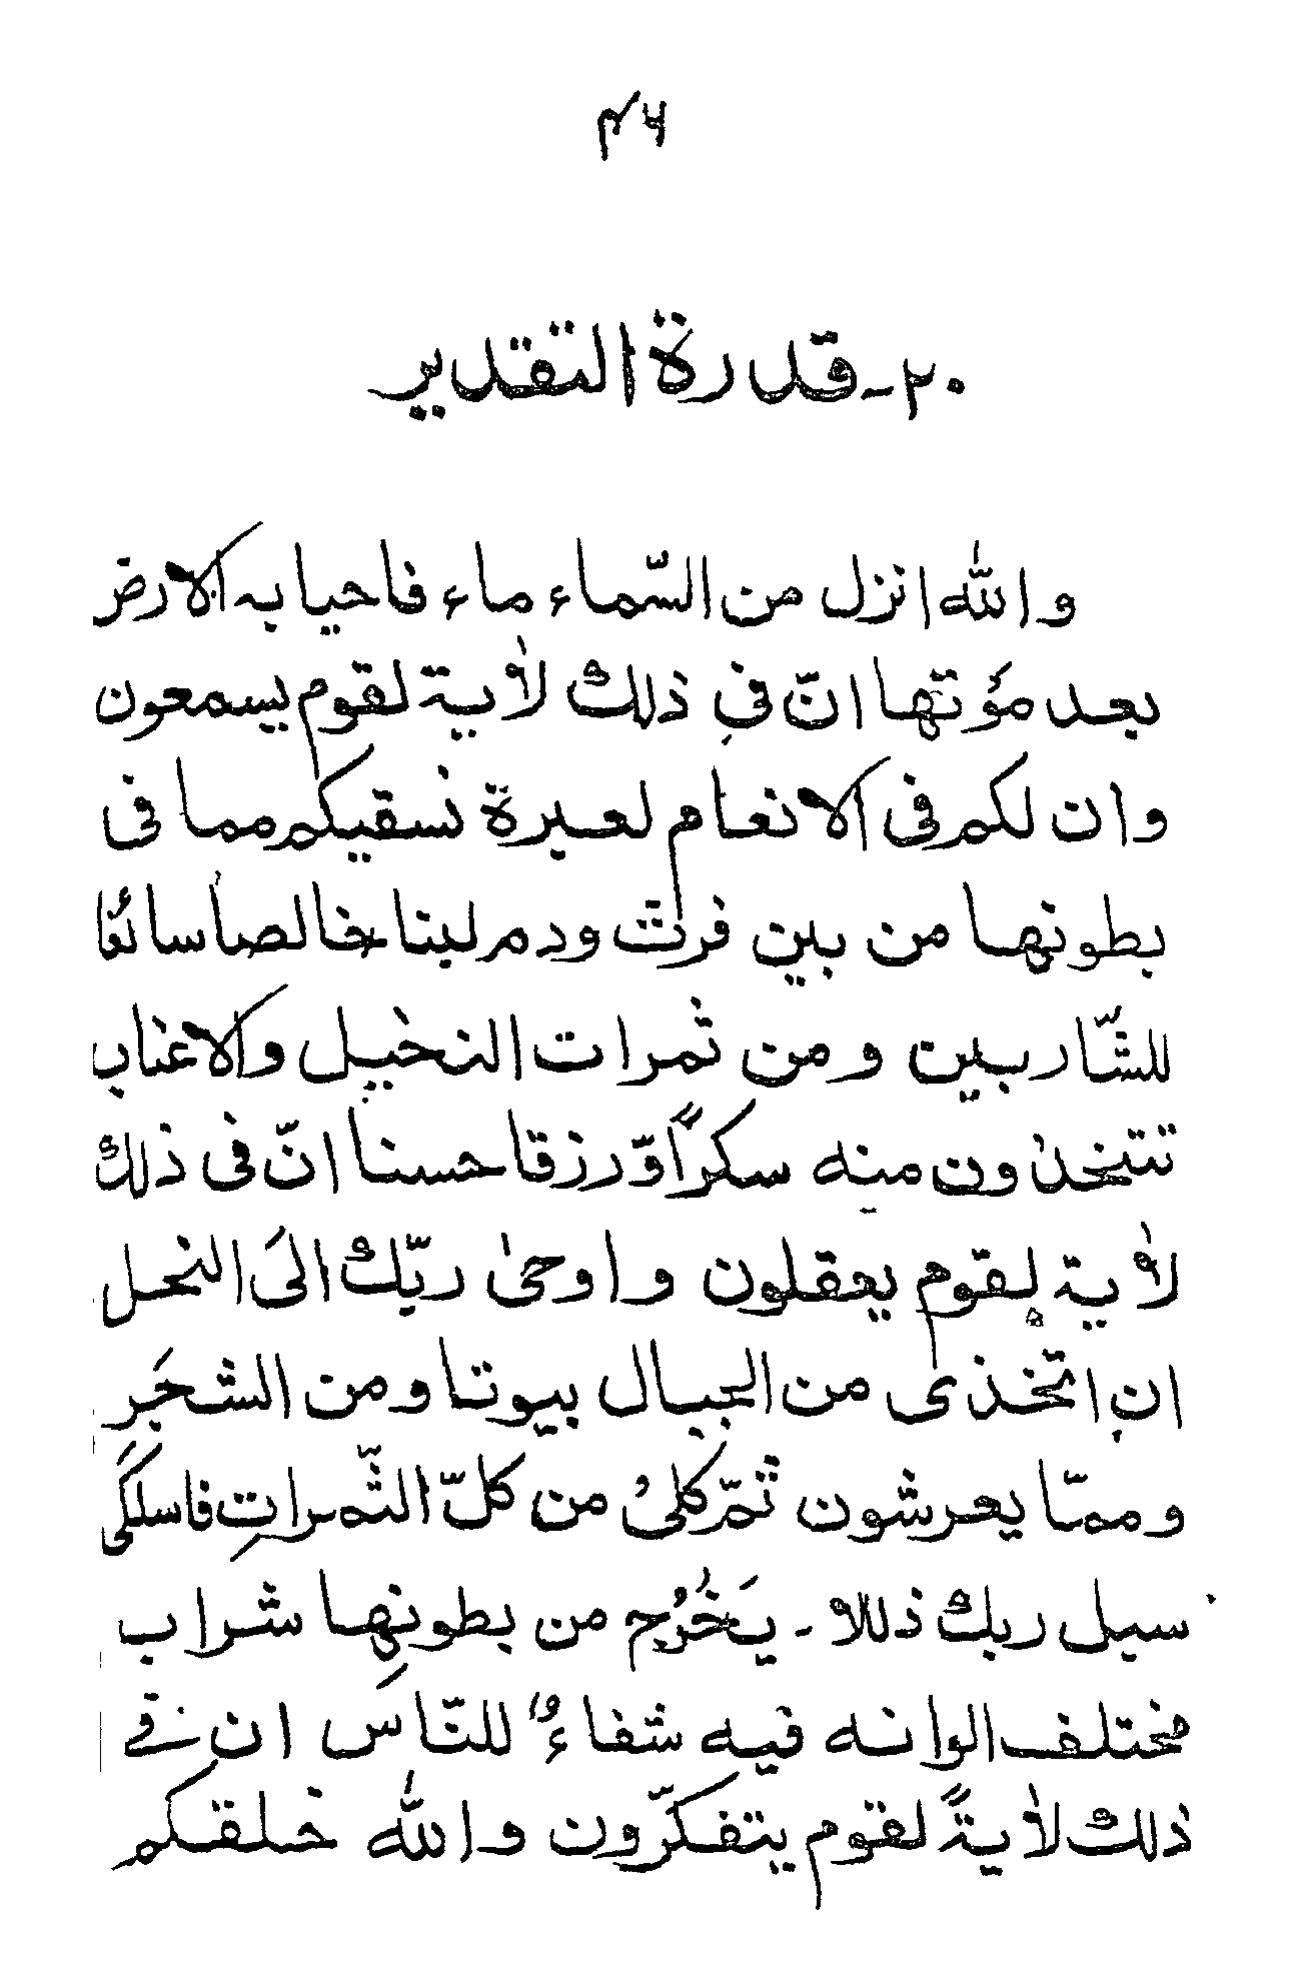 ۴۶
۲۰ - قدرة التقدير
والله انزل من السّماء ماء فاحيا به الارض
بعد مؤتها انّ في ذلك لاٰية لقوم يسمعون
وان لكم فى الانعام لعبرة نسقيكم مما فى
بطونها من بين فرث ودم لبنا خالصاً سائغا
للشّاربين ومن ثمرات النخيل والاعناب
تتخذون منه سكراً وّرزقا حسنا انّ فى ذلك
لاٰية لقوم يعقلون واوحىٰ ربّك الىَ النحل
انِ اتّخذى من الجبال بيوتا ومن الشجَر
وممّا يعرشون ثمّ كلىْ من كلّ الثّمراتِ فاسلكى
سبل ربك ذللا - يَخْرُج من بطونها شراب
مختلف الوانه فيه شفاءٌ للنّاس ان فى
ذلك لاٰيةً لقوم يتفكّرون والله خلقكم